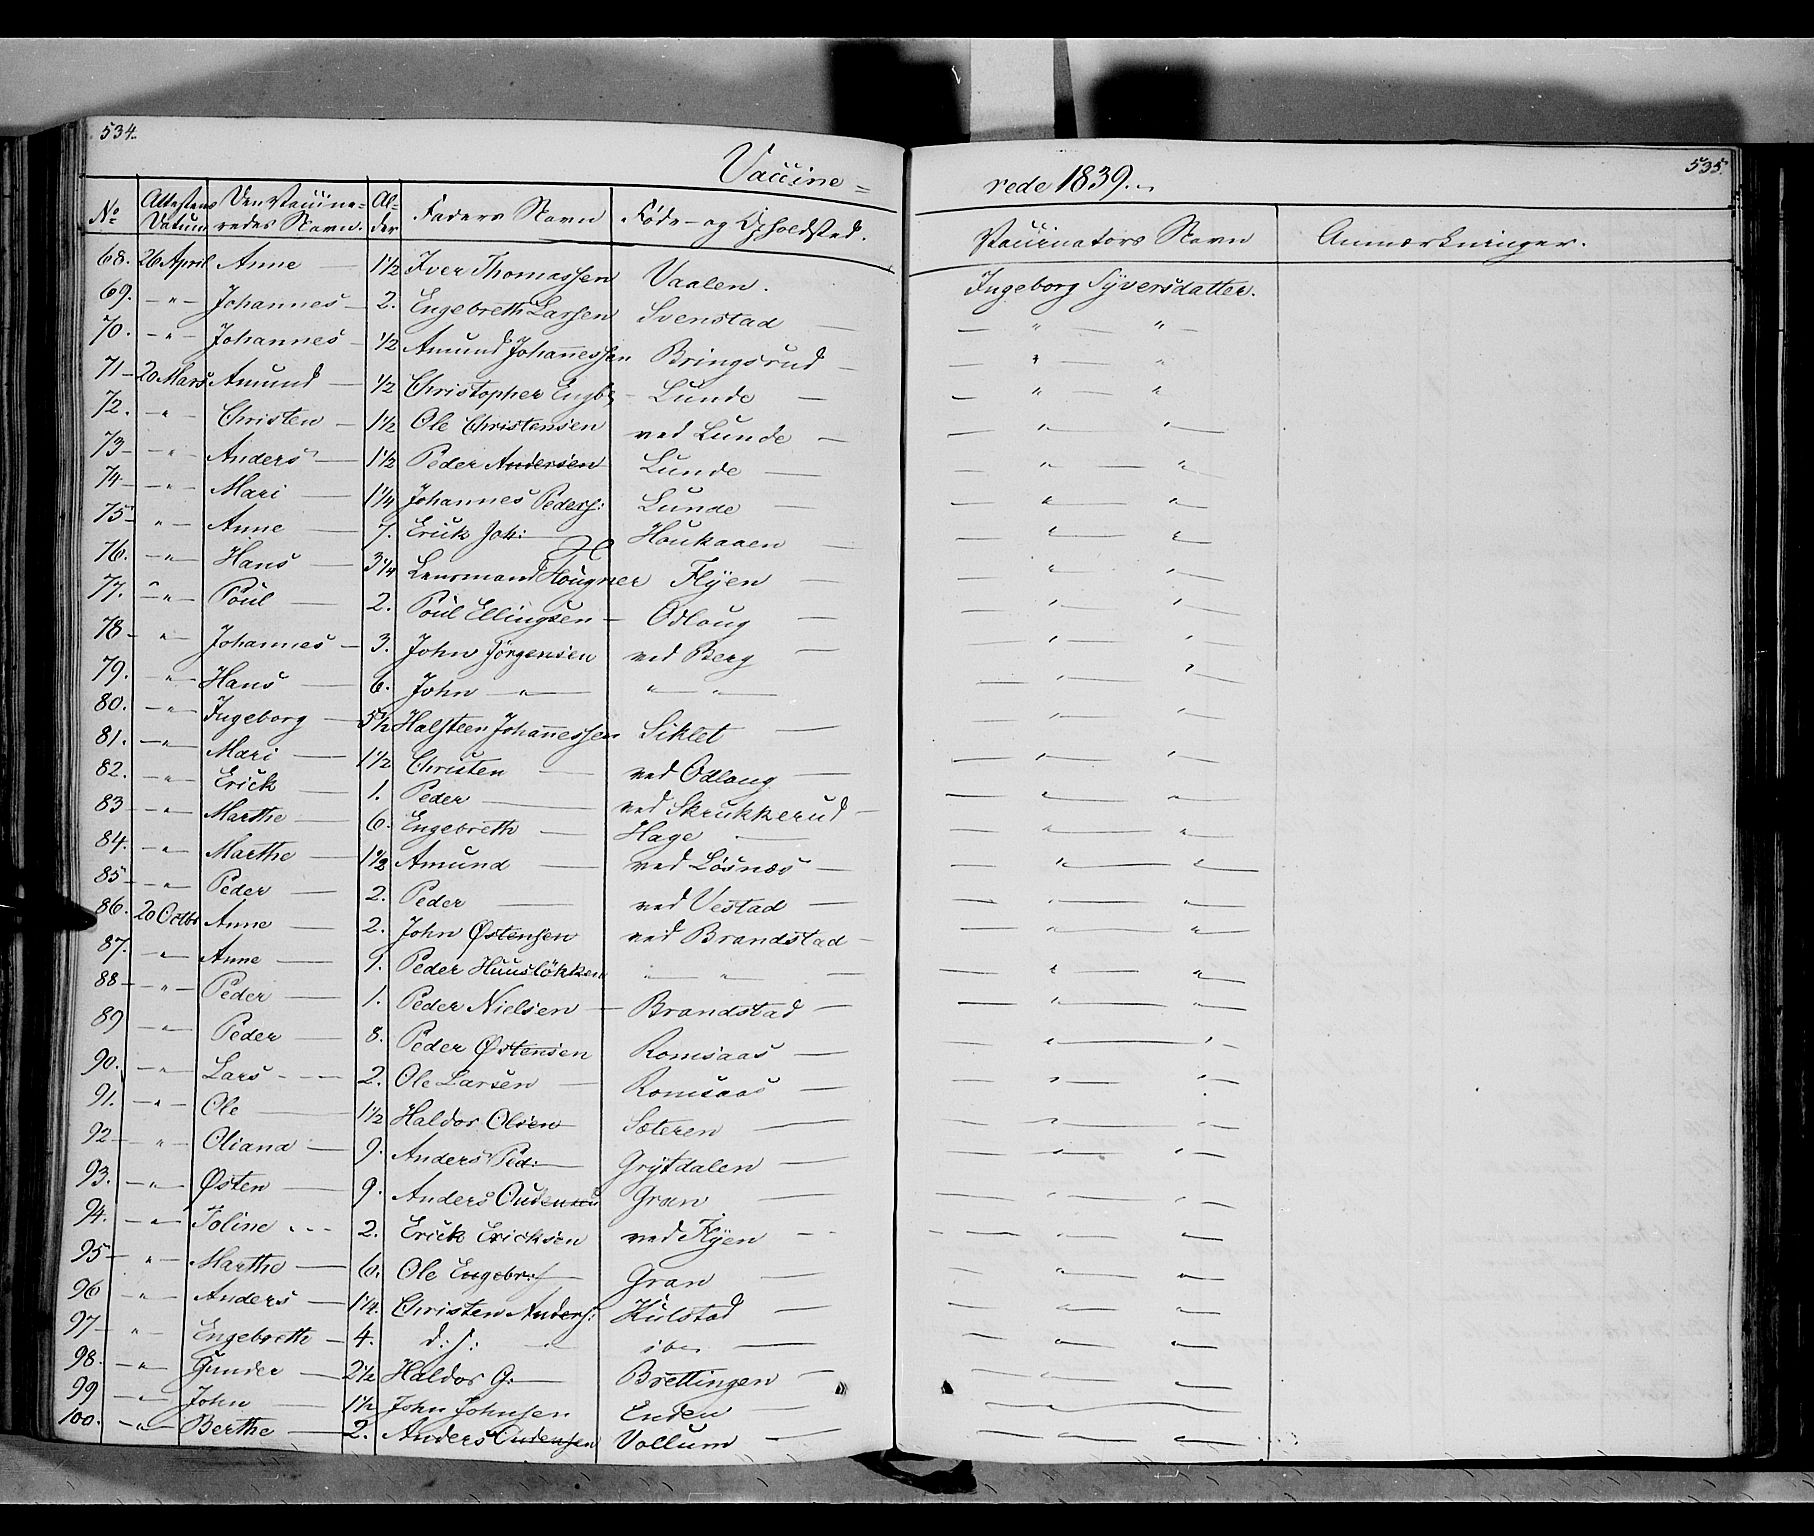 534.
535.
Vaccine=
rede 1839.
No Attestens Datum Den Vaccine=redes Navn. Al-der Faders Navn Føde- og Opholdsted. Vaccinators Navn Anmærkninger.
68. 26 April Anne — 1 1/2 Iver Thomassen Vaalen. Ingeborg Syversdatter.
69. — " — Johannes — 2. Engebreth Larsen Svenstad — — " — " —
70. — " — Johannes — 1/2 Amund Johannessen Bringsrud — — " — "
71 — 20 Mars Amund — 1/2 Christopher Engb. — Lunde — — " — "
72. — " — Christen — 1 1/2 Ole Christensen ved Lunde — — " — " —
73 — — " — Anders — 1 1/2 Peder Andersen Lunde — — " — "
74 — — " — Mari — 1 1/4 Johannes Peders: Lunde — — " — "
75 — " — Anne — 7. Erick Joh: — Houkaaen — — " — "
76. — " — Hans — 3 1/4 Lensmand Hougner Flyen — — " — "
77. — " — Poul — 2. Poul Ellingsen — Odloug — — " — "
78 — — " — Johannes — 3. John Jörgensen ved Berg — — " — "
79. — " — Hans — 6. John — " — " — " — — " — "
80. — " — Ingeborg — 5 1/2 Halsteen Johannessen Siklet — — " — "
81. — " — Mari — 1 1/2 Christen — ved Odloug — — " — "
82. — " — Erick — 1. Peder — ved Skrukkerud — — " — "
83 — — " — Marthe — 6. Engebreth — Hage — — " — "
84. — " — Marthe — 1 1/2 Amund — ved Løsnæs — — " — "
85 — — " — Peder — 2. Peder — ved Vestad — — " — "
86. 20 Octbr Anne — 2. John Østensen ved Brandstad — — " — "
87. — " — Anne — 9. Peder Huusløkken " — " — — " — "
88 — — " — Peder — 1. Peder Nielsen — Brandstad — — " — "
89 — " — Peder — 8. Peder Østensen Romsaas — — " — "
90. — " — Lars — 2. Ole Larsen — Romsaas — — " — "
91. — " — Ole — 1 1/2 Haldor Olsen Sæteren — — " — "
92 — — " — Oliana — 9. Anders Ped: — Grytdalen — — " — "
93. — " — Østen — 9. Anders Gran — — " — "
94. — " — Joline — 2. Erick Ericksen ved Flyen — — " — "
95 — — " — Marthe — 6. Ole Engebr: — Gran — — " — "
96 — " — Anders — 1 1/4. Christen Anders: Hulstad — — " — "
97 — — " — Engebreth — 4. d: s: " ibn — — " — "
98. — " — Gunder — 2 1/2 Haldor G: — Brettingen — — " — "
99 — " — John — 1 1/2 John Johnsen Enden — — " — "
100. — " — Berthe — 2. Anders Oudensen Vollum — — " — "